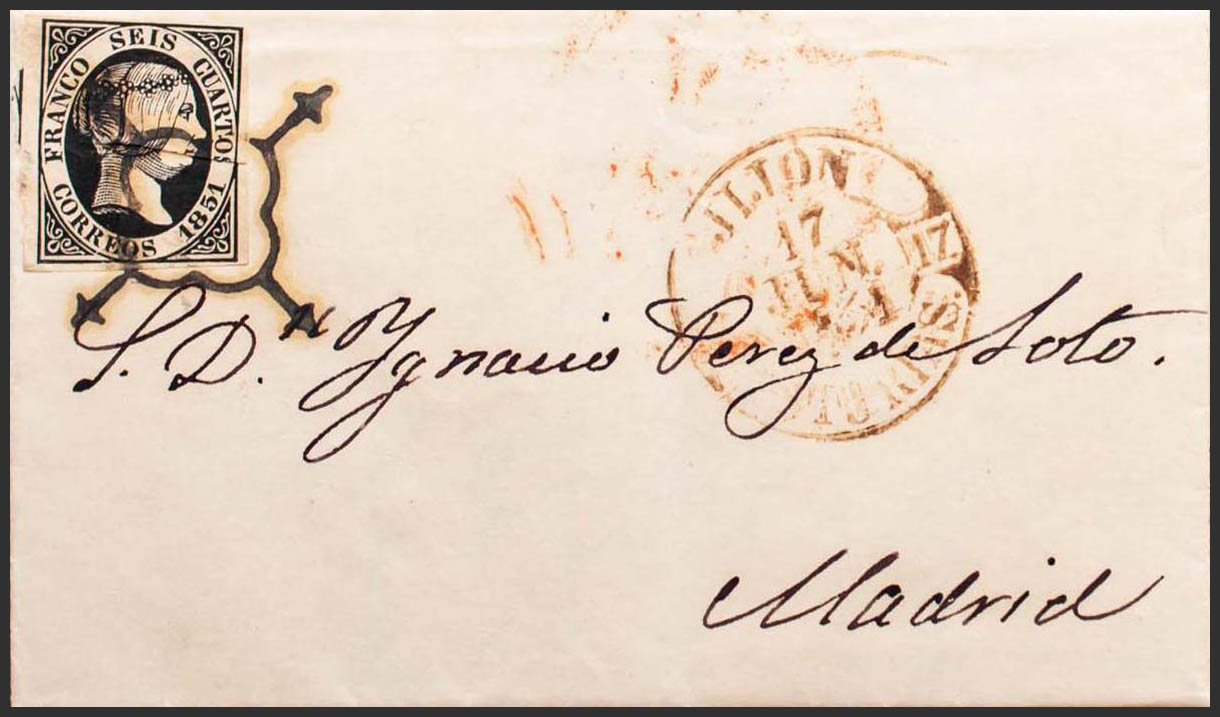 FRANCO SEIS CUARTOS
CORREOS 1851
17
JUN.
1851
S. D.ⁿ Ygnacio Perez de Soto.
Madrid